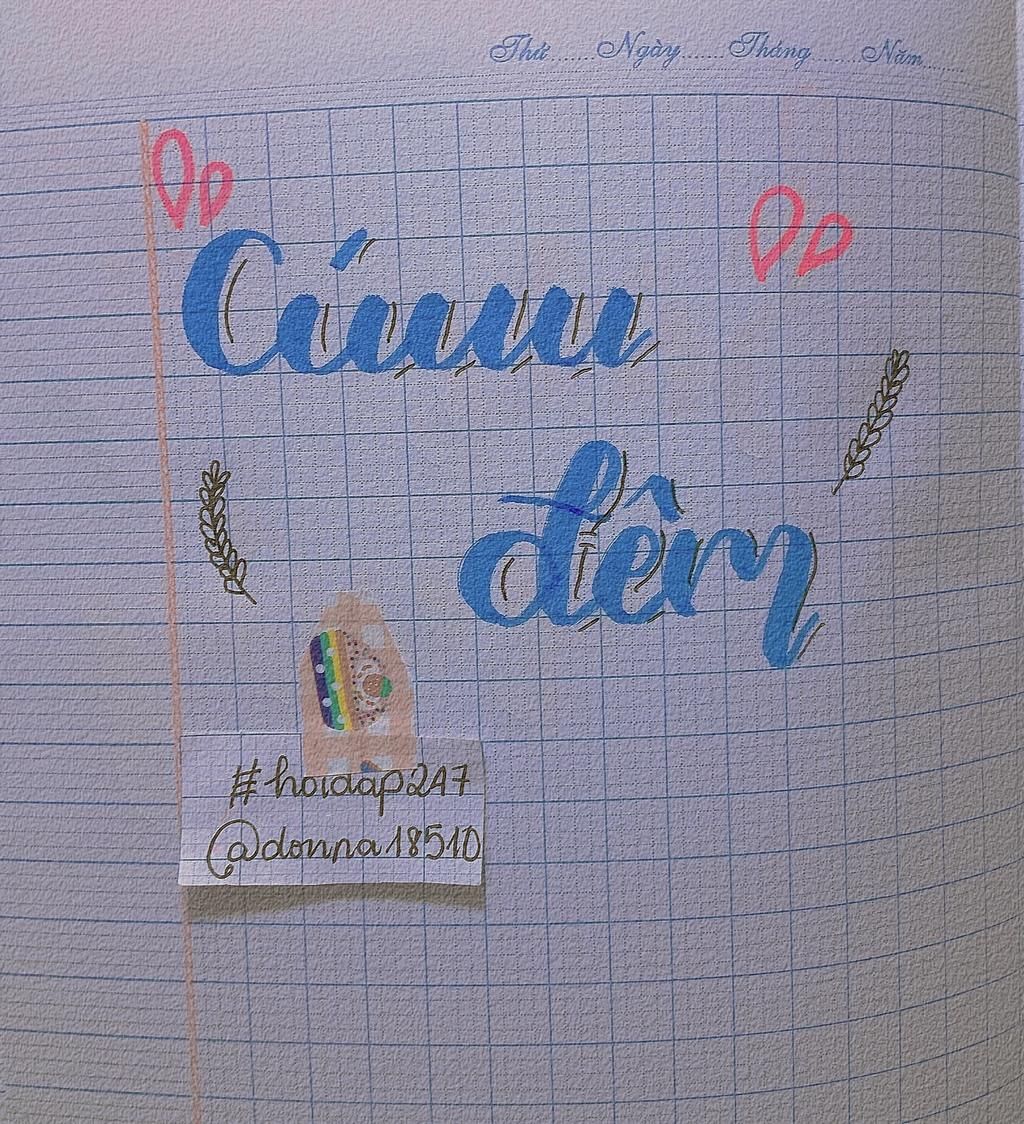 Thứ......Ngày......Tháng......Năm......
Cúuu
đêm
#hoidap247
@donna18510